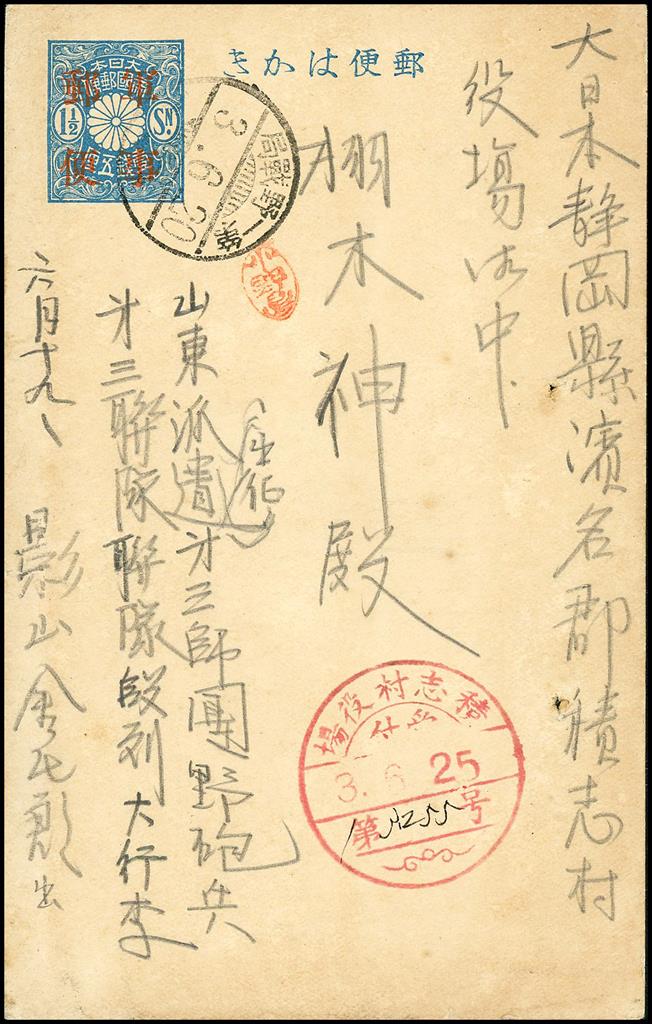 きかは便郵
大日本
1½ SN.
軍事
郵便
3.6.20
大日本静岡縣濱名郡積志村
役場御中
木神殿
山東派遣才三師團野砲兵
才三聯隊聯隊段列大行李
六月十九、
影山金
出
積志村役場
3.6.25
第
号